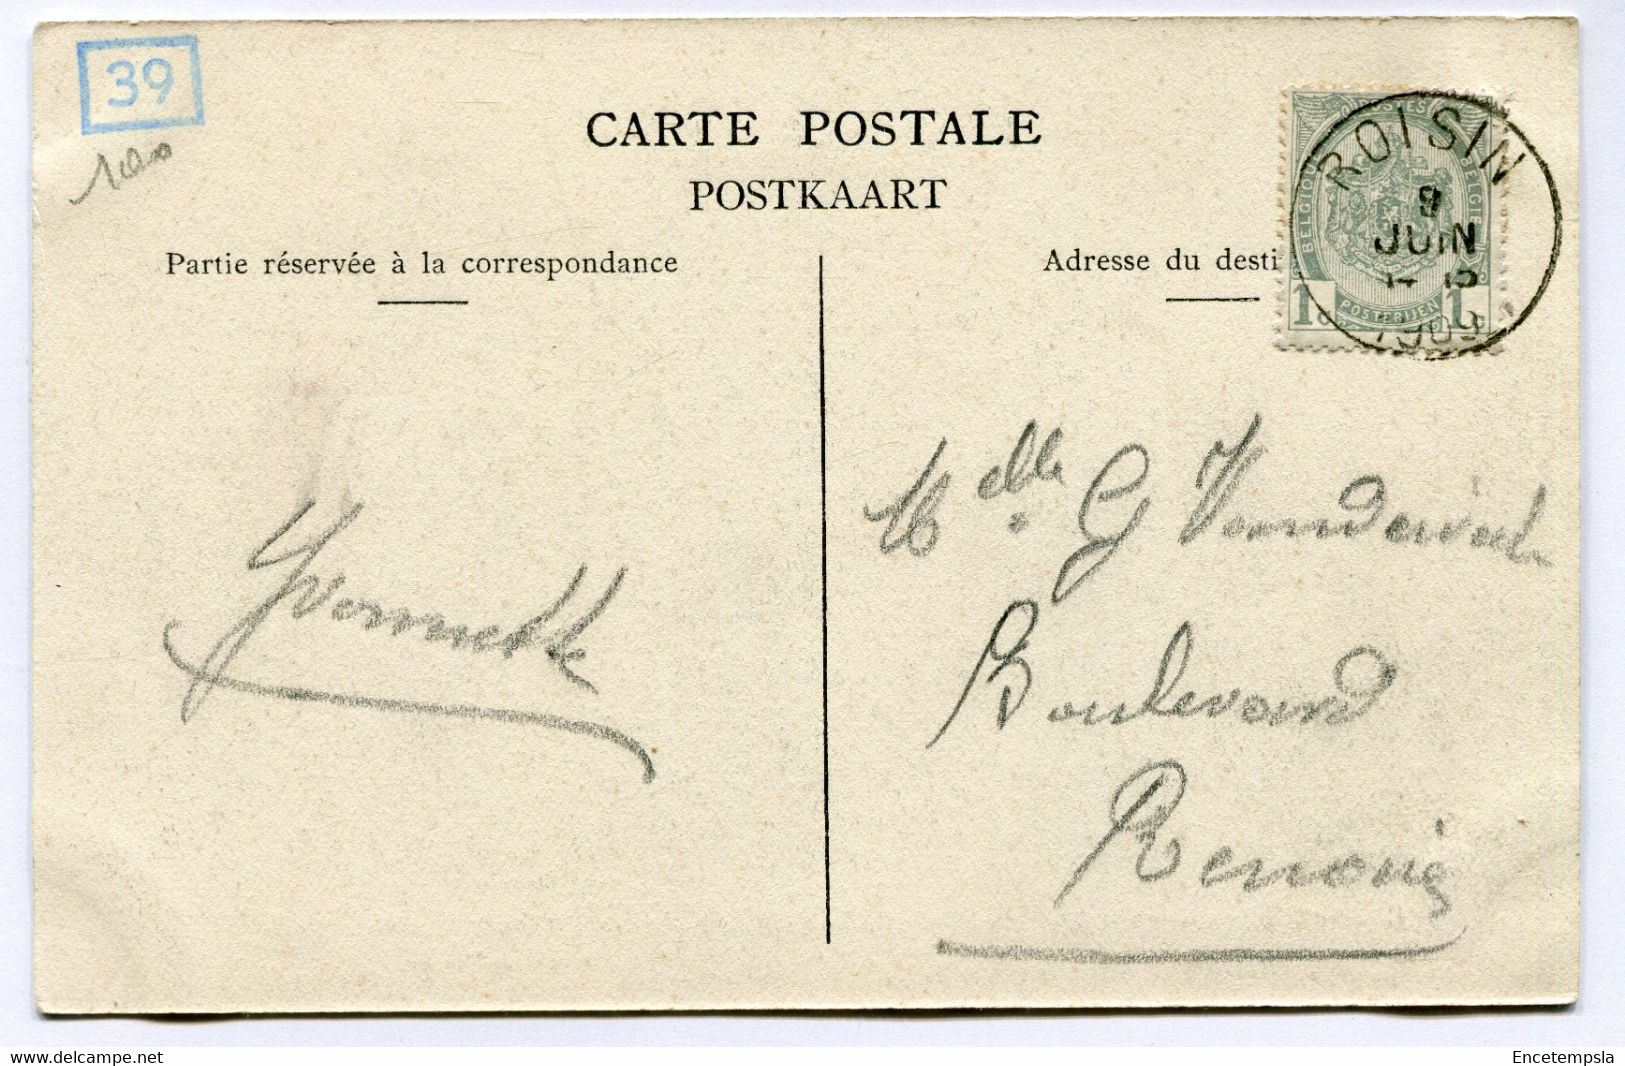 39
100
CARTE POSTALE
POSTKAART
Partie réservée à la correspondance
Adresse du desti
BELGIQUE BELGIE
POSTERIJEN
1c 1c
ROISIN
9
JUIN
1909
Melle G
Boulevard
Yvonnette
www.delcampe.net
Encetempsla